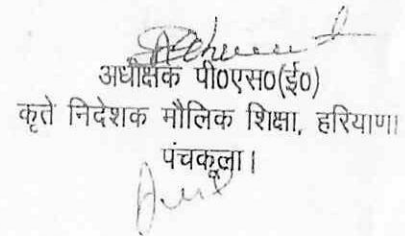 अधीक्षक पी0एस0(ई0)
कृते निदेशक मौलिक शिक्षा, हरियाणा
पंचकूला।